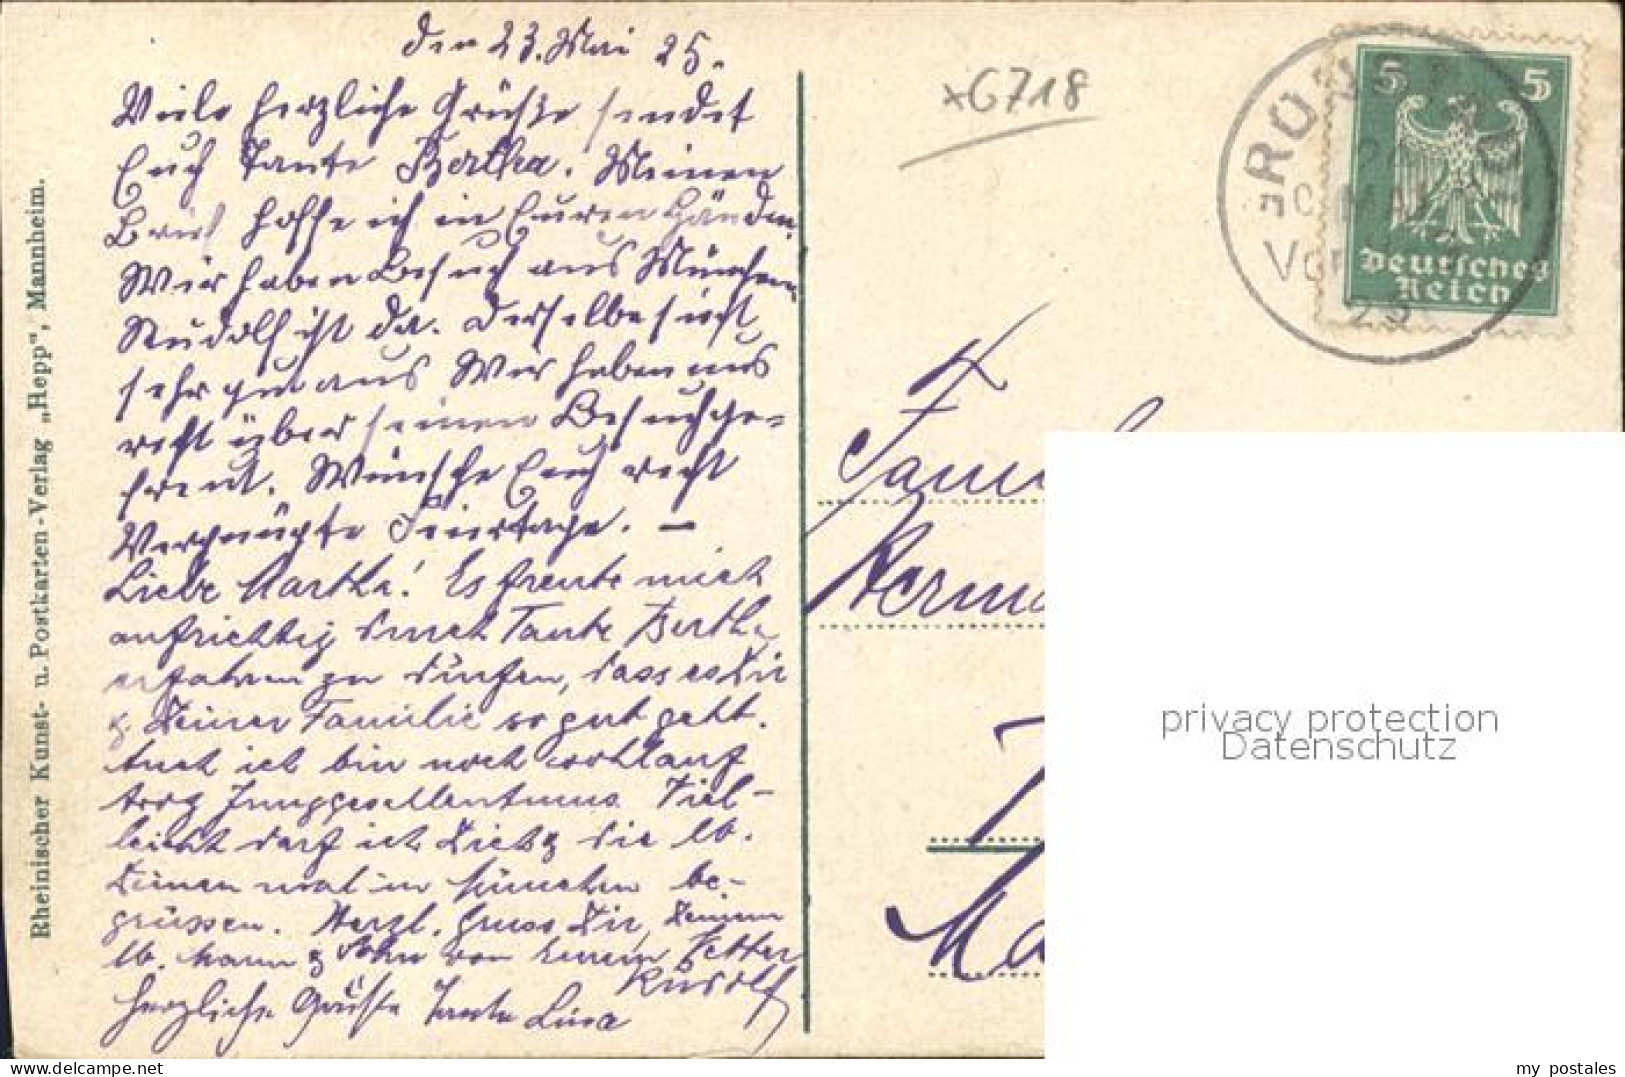 den 23. Mai 25.
Viele herzliche Grüße sendet
Euch Tante Bertha. Meinen
Brief hoffe ich in Euren Händen.
Wir haben Besuch aus München
Rudolf ist da. Derselbe sieht
sehr gut aus Wir haben uns
recht über seinen Besuch ge-
freut. Wünsche Euch recht
Vergnügte Feiertage. —
Liebe Martha! Es freute mich
aufrichtig durch Tante Bertha
erfahren zu dürfen, dass es Dir
& Deiner Familie so gut geht.
Auch ich bin noch wohlauf
trotz Junggesellentums. Viel-
leicht darf ich Dich & die lb.
Deinen mal in München be-
grüssen. Herzl. Gruss Dir, Deinem
lb. Mann & Sohn von Deinem Vetter
Rudolf
Herzliche Grüße Tante Luise
Rheinischer Kunst- u. Postkarten-Verlag „Hepp", Mannheim.
*6718
5 5
Deutsches
Reich
Vor
25
Fami
Herm
Ma
privacy protection
Datenschutz
© delcampe.net
my postales